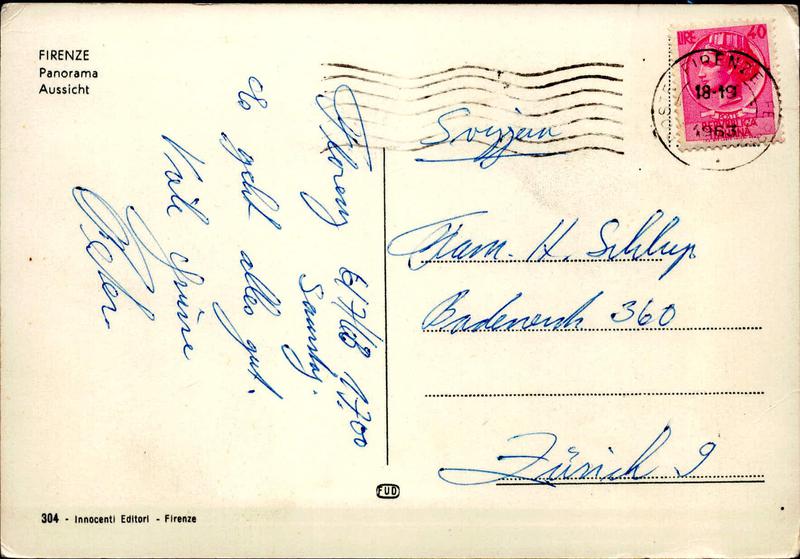 FIRENZE
Panorama
Aussicht
Florenz 6/7/63 17.00
Samstag.
Es geht alles gut.
Viele Grüsse
Peter.
LIRE 40
REPUBBLICA
ITALIANA
FIRENZE
18-19
1963
Svizzera
Fam. H. Schlup
Badenerstr 360
Zürich 9
FUD
304 - Innocenti Editori - Firenze